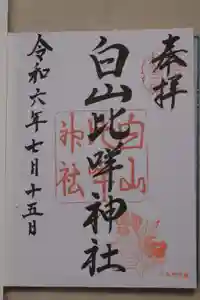 奉拝
白山比咩神社
白山
神社
令和六年七月十五日